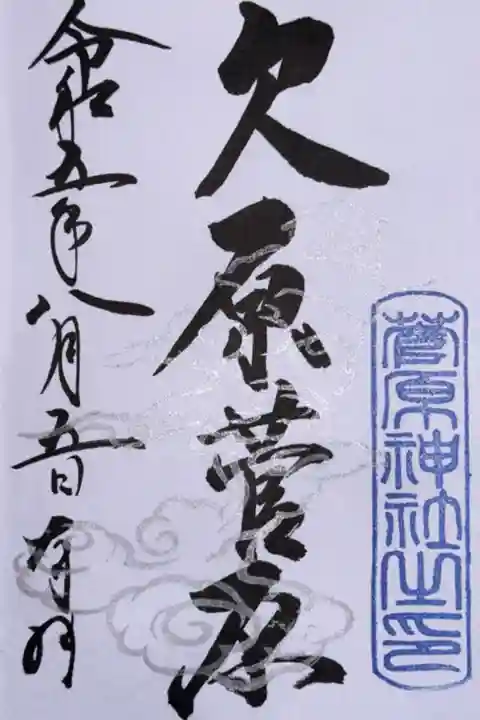 菅原神社之印
久原菅原
令和五年八月五日奉拝